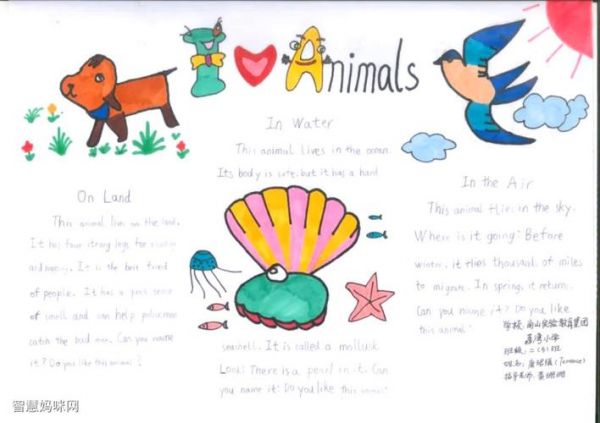 I ♥ Animals
In Water
This animal lives in the ocean.
Its body is cute, but it has a hard
seashell. It is called a mollusk.
Look! There is a pearl in it. Can
you name it? Do you like this animal?
On Land
This animal lives on the land.
It has four strong legs for
and running. It is the best friend
of people. It has a good sense
of smell and can help policeman
catch the bad man. Can you name
it? Do you like this animal?
In the Air
This animal flies in the sky.
Where is it going? Before
winter, it flies thousand of miles
to migrate. In spring, it returns.
Can you name it? Do you like
this animal?
学校: 南山实验教育集团
荔湾小学
班级: 二(5)班
姓名: (Terrance)
指导老师: 黄珊珊
智慧妈咪网